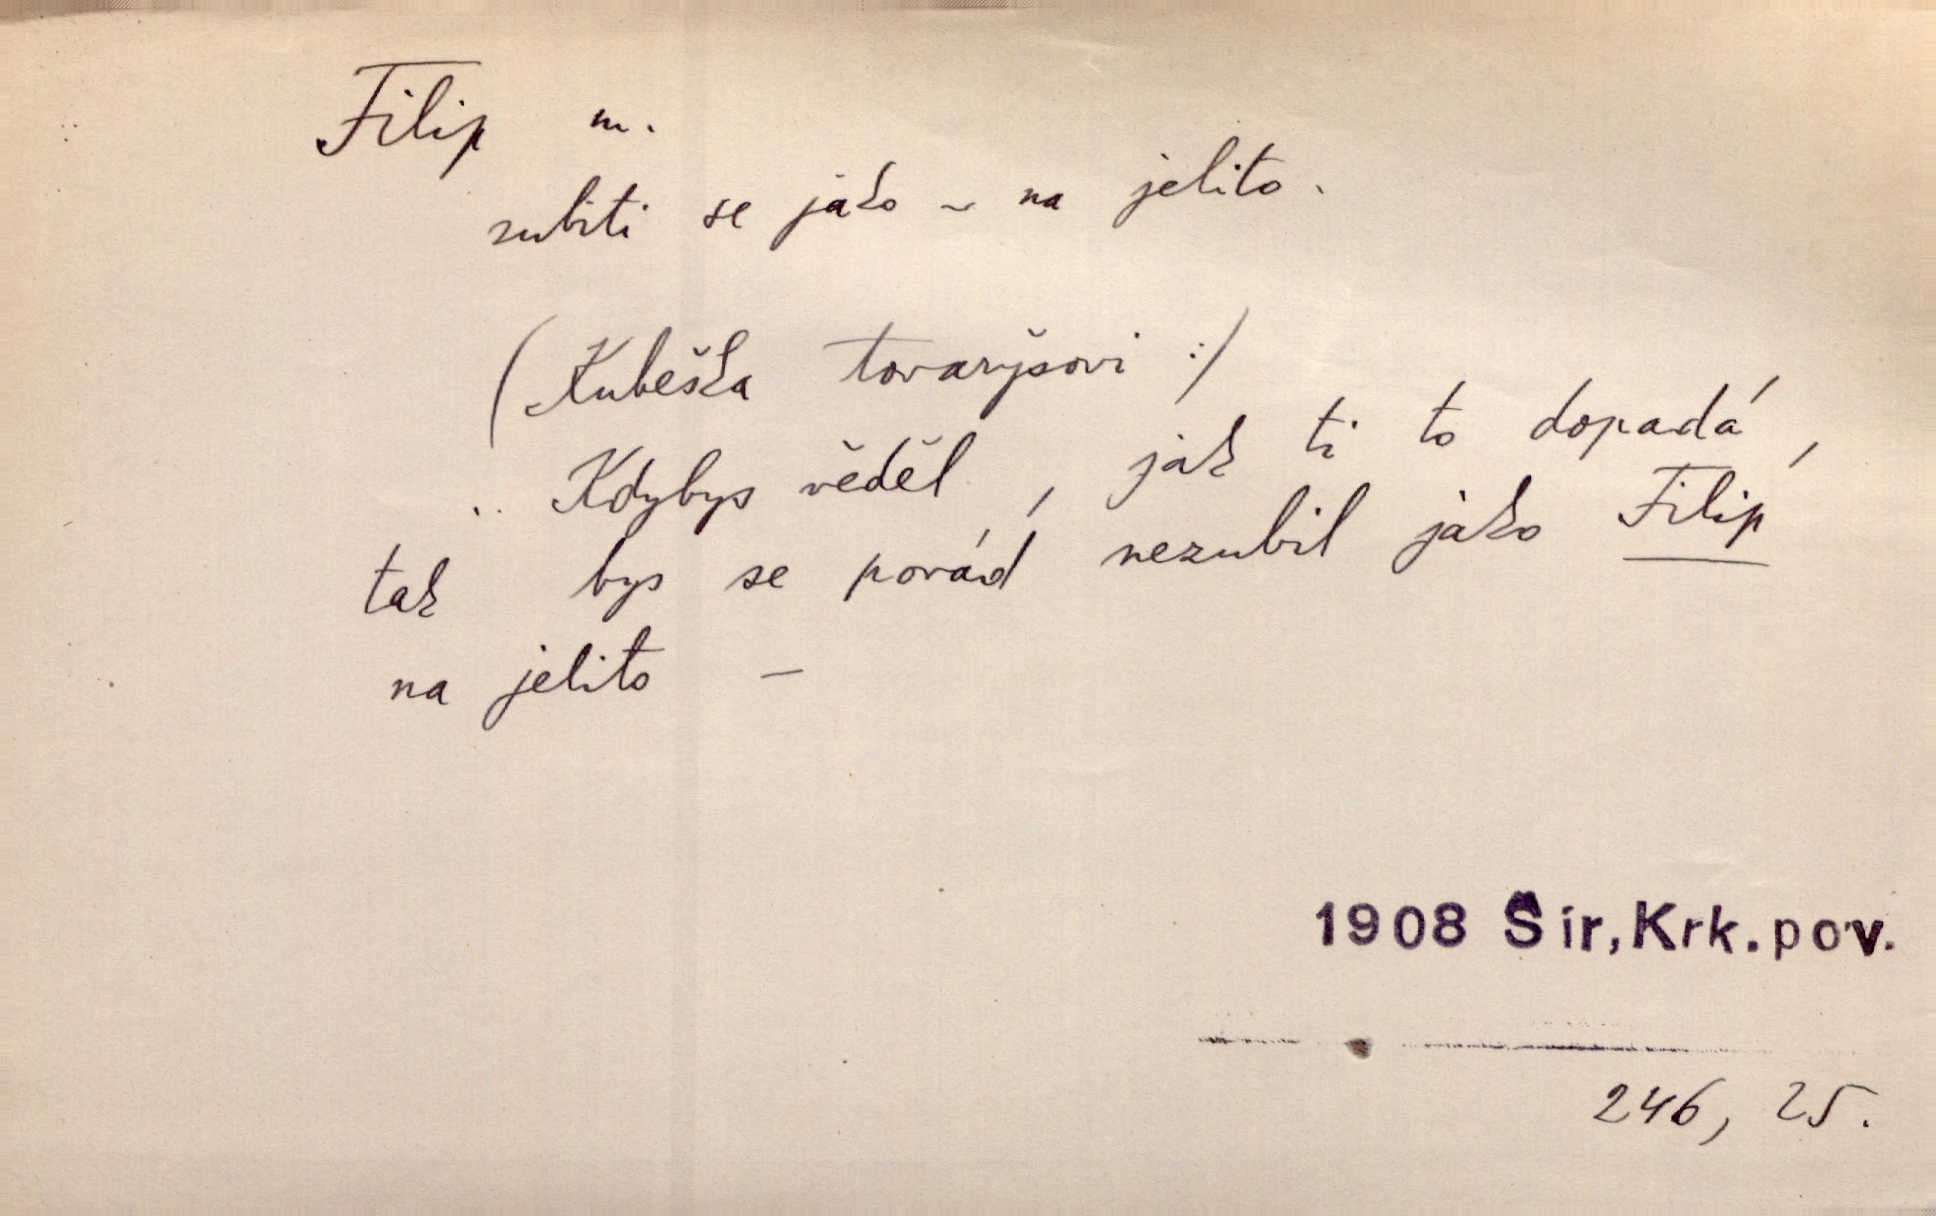 Filip m.
zubiti se jako ~ na jelito.
(Kubeška tovaryšovi:)
.. Kdybys věděl, jak ti to dopadá,
tak bys se pořád nezubil jako Filip
na jelito —
1908 Šír, Krk. pov.
246, 25.